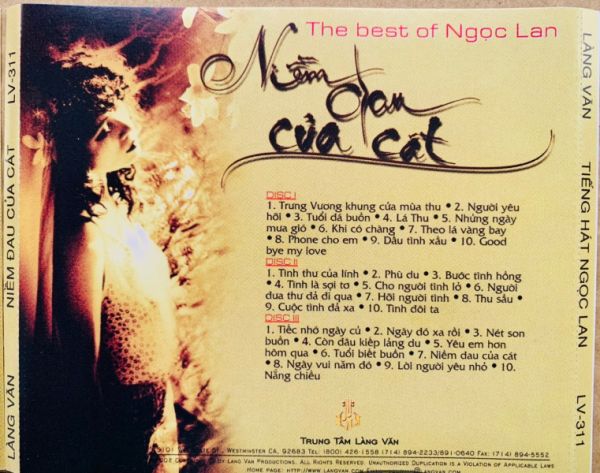 The best of Ngọc Lan
Niềm đau
của cát
DISC I
1. Trưng Vương khung cửa mùa thu • 2. Người yêu
hỡi • 3. Tuổi đá buồn • 4. Lá Thu • 5. Những ngày
mưa gió • 6. Khi có chàng • 7. Theo lá vàng bay
• 8. Phone cho em • 9. Dẫu tình xấu • 10. Good
bye my love
DISC II
1. Tình thư của lính • 2. Phù du • 3. Bước tình hồng
• 4. Tình là sợi tơ • 5. Cho người tình lỡ • 6. Người
đưa thư đã đi qua • 7. Hỡi người tình • 8. Thu sầu
• 9. Cuộc tình đã xa • 10. Tình đôi ta
DISC III
1. Tiếc nhớ ngày cũ • 2. Ngày đó xa rồi • 3. Nét son
buồn • 4. Còn đâu kiếp lãng du • 5. Yêu em hơn
hôm qua • 6. Tuổi biết buồn • 7. Niềm đau của cát
• 8. Ngày vui năm đó • 9. Lời người yêu nhỏ • 10.
Nắng chiều
TRUNG TÂM LÀNG VĂN
WESTMINSTER CA, 92683 TEL: (800) 426-1558 (714) 894-2233/891-0640 FAX: (714) 894-5552
BY LANG VAN PRODUCTIONS. ALL RIGHTS RESERVED. UNAUTHORIZED DUPLICATION IS A VIOLATION OF APPLICABLE LAWS
HOME PAGE: HTTP://WWW.LANGVAN.COM
LÀNG VĂN NIỀM ĐAU CỦA CÁT LV-311
LÀNG VĂN TIẾNG HÁT NGỌC LAN LV-311